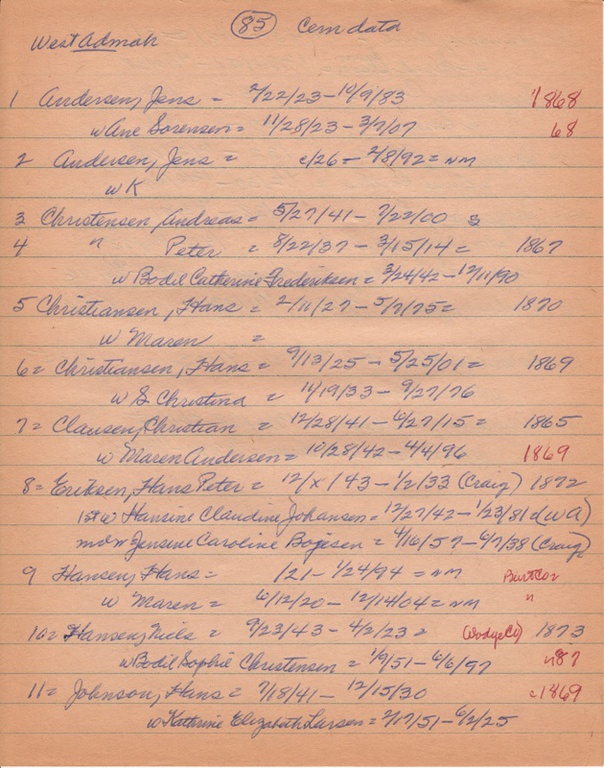 West Admah (85) Cem data
1 Andersen, Jens = 2/22/23 - 10/9/83 1868
w Ane Sorensen = 11/28/23 - 3/7/07 68
2 Andersen, Jens = c/26 - 2/8/92 = NM
w K
3 Christensen, Andreas = 5/27/41 - 7/22/00 S
4 " Peter = 8/22/37 - 3/15/14 = 1867
w Bodil Catherine Frederiksen = 3/24/42 - 12/11/90
5 Christiansen, Hans = 2/11/27 - 5/7/75 = 1870
w Maren =
6 = Christiansen, Hans = 9/13/25 - 5/25/01 = 1869
w S Christina = 11/19/33 - 9/27/76
7 = Clausen, Christian = 12/28/41 - 6/27/15 = 1865
w Maren Andersen = 10/28/42 - 4/4/96 1869
8 = Eriksen, Hans Peter = 12/x/43 - 1/2/33 (Craig) 1872
1st w Hansine Claudine Johansen = 12/27/42 - 1/23/81 d (WA)
2nd w Jensine Caroline Bogesen = 4/16/57 - 6/7/38 (Craig)
9 Hansen, Hans = /21 - 1/24/94 = NM Burt Co
w Maren = 6/12/20 - 12/14/04 = NM "
10 = Hansen, Niels = 9/23/43 - 4/2/23 = (Dodge Co) 1873
w Bodil Sophie Christensen = 1/9/51 - 6/6/97 " 87
11 = Johnson, Hans = 7/18/41 - 12/15/30 c 1869
w Kathrine Elizabeth Larsen = 2/17/51 - 6/2/25